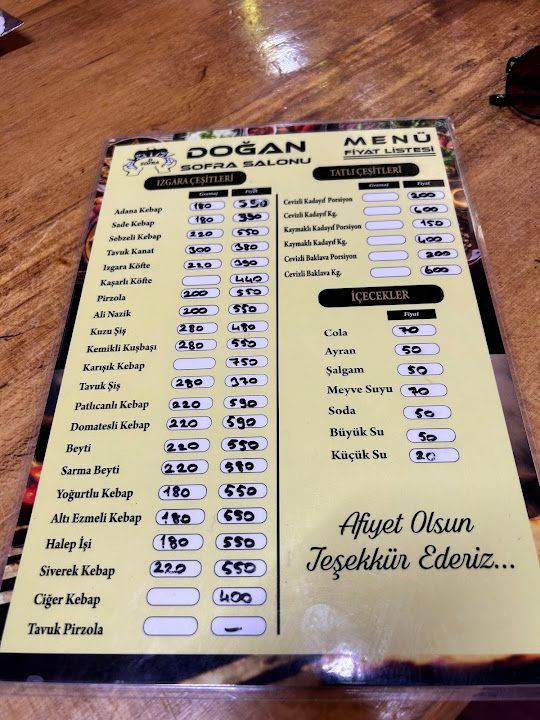 SOFRA
DOĞAN
SOFRA SALONU
MENÜ
FİYAT LİSTESİ
IZGARA ÇEŞİTLERİ
Gramaj Fiyat
Adana Kebap 180 390
Sade Kebap 180 390
Sebzeli Kebap 220 550
Tavuk Kanat 300 380
Izgara Köfte 220 390
Kaşarlı Köfte 440
Pirzola 200 550
Ali Nazik 200 550
Kuzu Şiş 280 480
Kemikli Kuşbaşı 280 550
Karışık Kebap 750
Tavuk Şiş 280 370
Patlıcanlı Kebap 220 590
Domatesli Kebap 220 590
Beyti 220 550
Sarma Beyti 220 580
Yoğurtlu Kebap 180 550
Altı Ezmeli Kebap 180 550
Halep İşi 180 550
Siverek Kebap 220 550
Ciğer Kebap 400
Tavuk Pirzola –
TATLI ÇEŞİTLERİ
Gramaj Fiyat
Cevizli Kadayıf Porsiyon 200
Cevizli Kadayıf Kg. 600
Kaymaklı Kadayıf Porsiyon 150
Kaymaklı Kadayıf Kg. 400
Cevizli Baklava Porsiyon 200
Cevizli Baklava Kg. 600
İÇECEKLER
Fiyat
Cola 70
Ayran 50
Şalgam 50
Meyve Suyu 70
Soda 50
Büyük Su 50
Küçük Su 20
Afiyet Olsun
Teşekkür Ederiz...